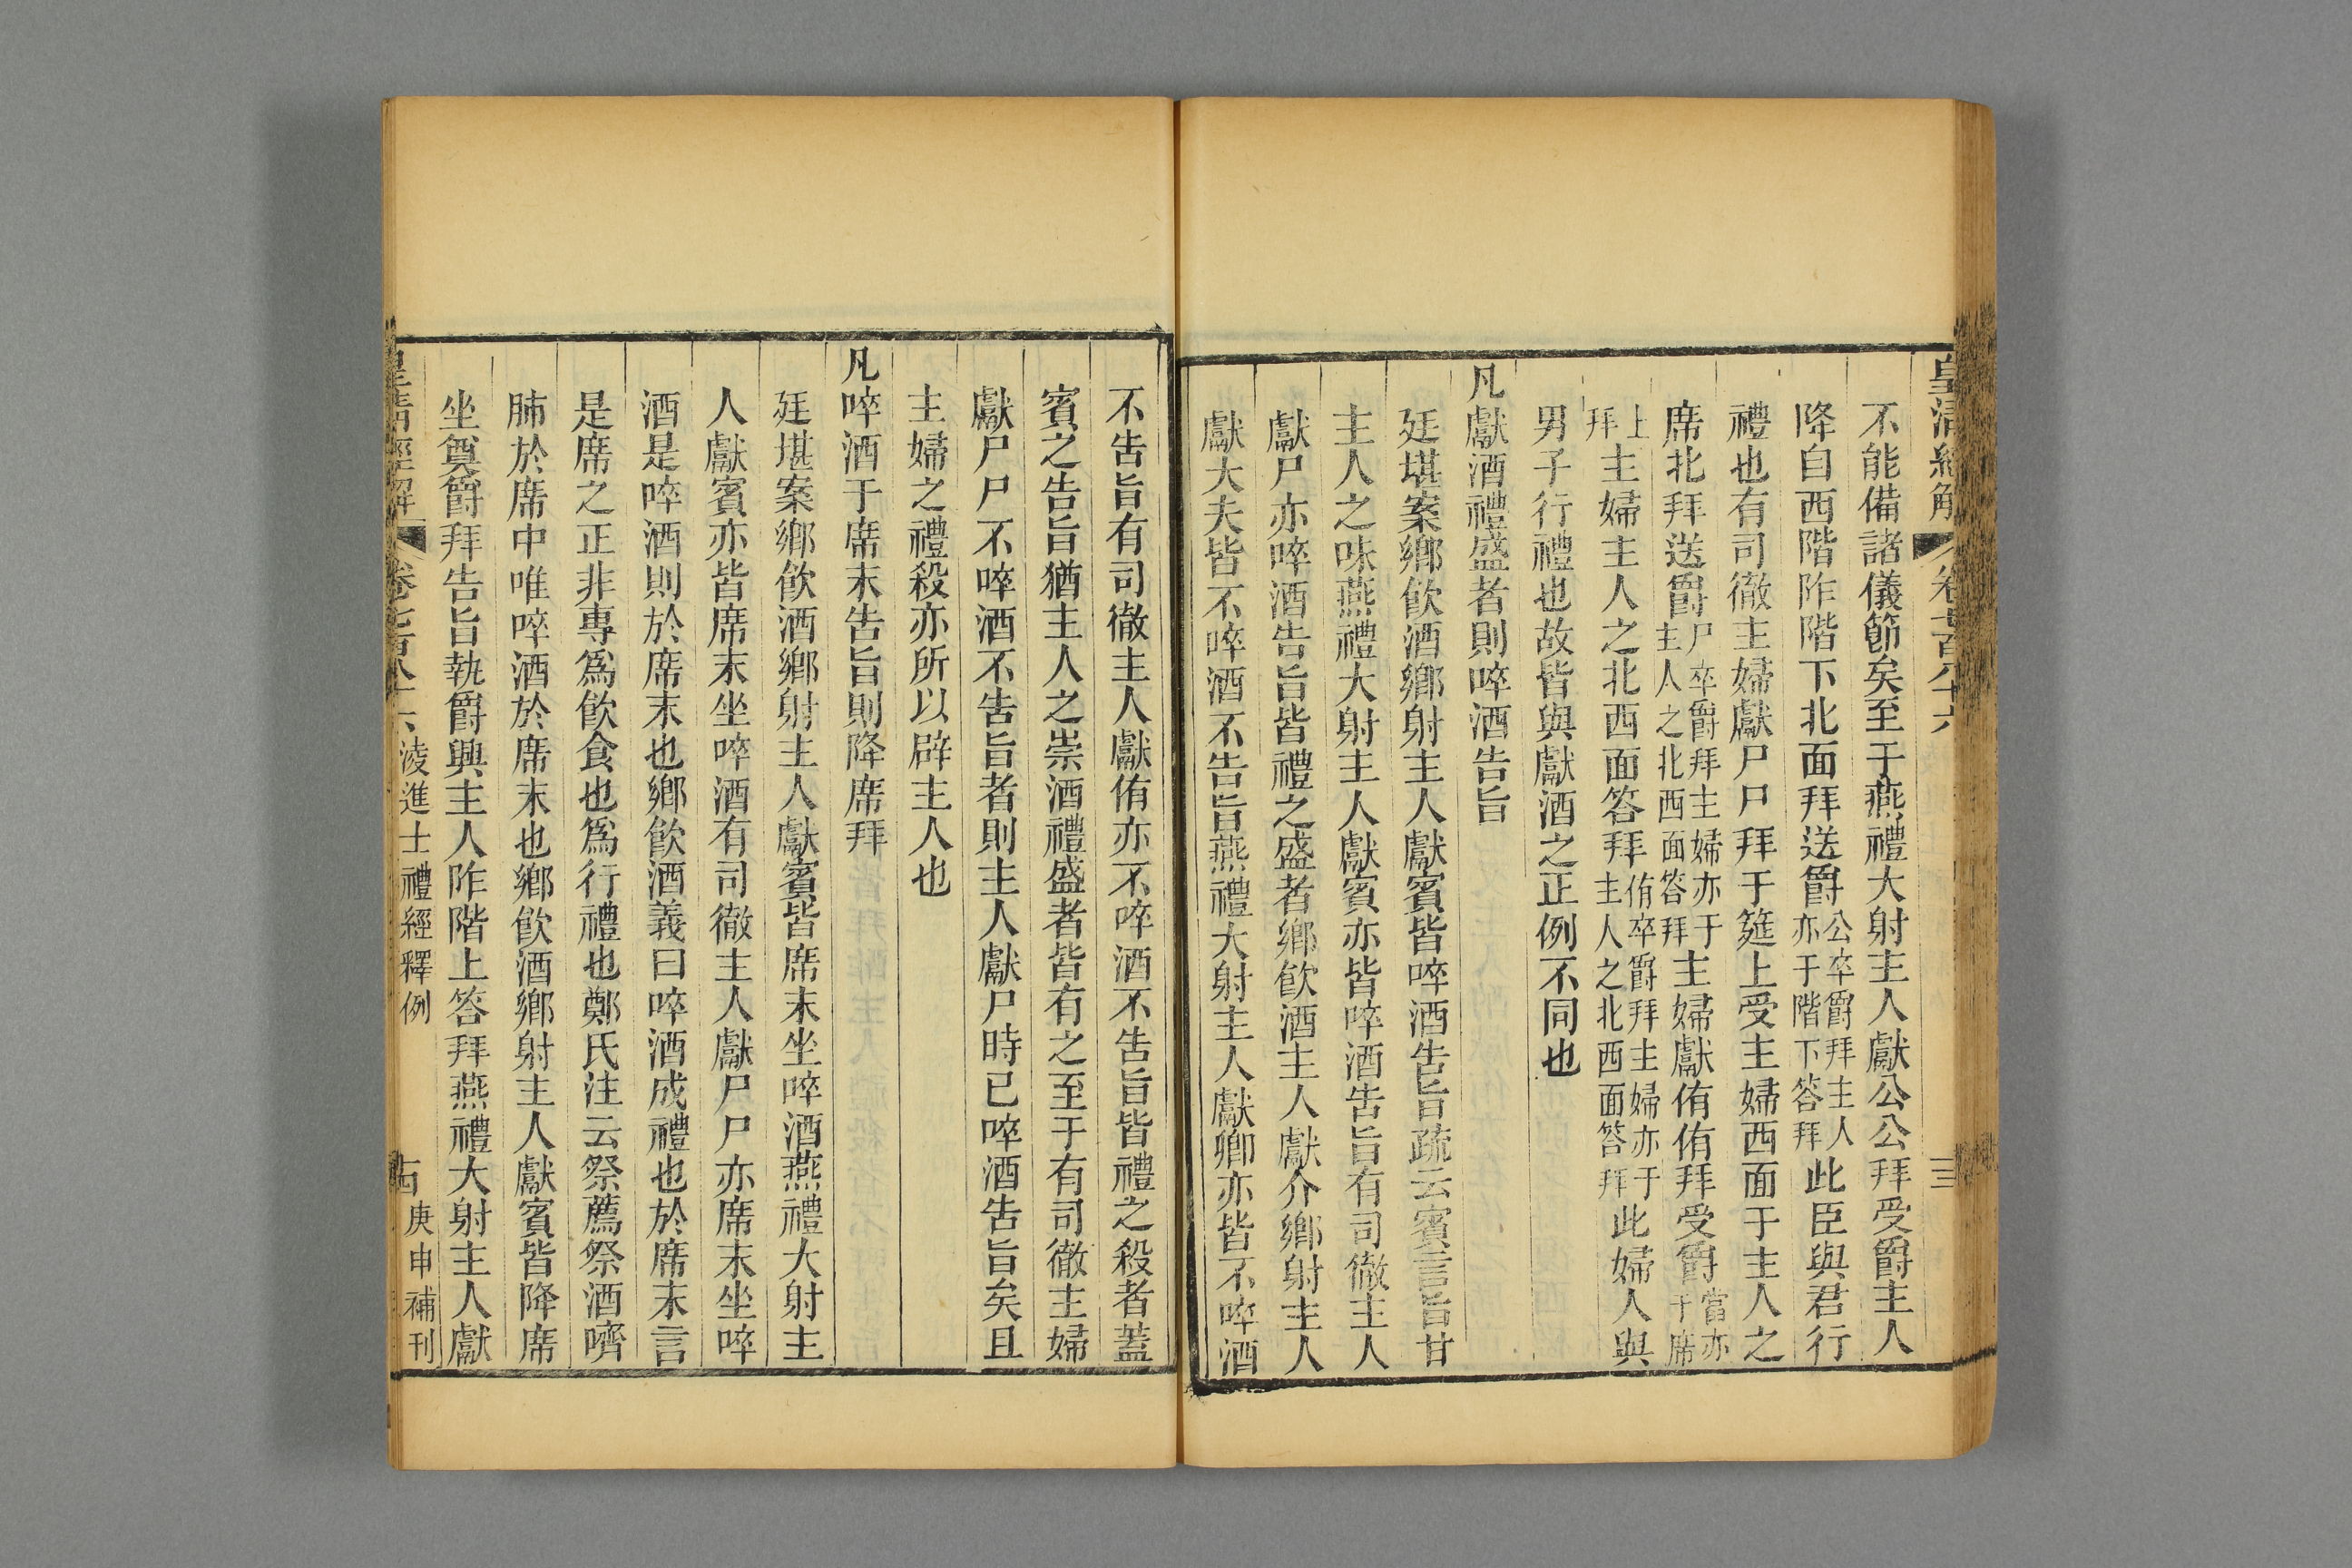 皇清經解
卷七百八十六
三
不能備諸儀節矣至于燕禮大射主人獻公公拜受爵主人
降自西階阼階下北面拜送爵公卒爵拜主人亦于階下答拜此臣與君行
禮也有司徹主婦獻尸尸拜于筵上受主婦西面于主人之
席北拜送爵尸卒爵拜主婦亦于主人之北西面答拜主婦獻侑侑拜受爵當亦于席
上拜主婦主人之北西面答拜侑卒爵拜主婦亦于主人之北西面答拜此婦人與
男子行禮也故皆與獻酒之正例不同也
凡獻酒禮盛者則啐酒告旨
廷堪案鄉飲酒鄉射主人獻賓皆啐酒告旨疏云賓言旨甘
主人之味燕禮大射主人獻賓亦皆啐酒告旨有司徹主人
獻尸亦啐酒告旨皆禮之盛者鄉飲酒主人獻介鄉射主人
獻大夫皆不啐酒不告旨燕禮大射主人獻卿亦皆不啐酒
不告旨有司徹主人獻侑亦不啐酒不告旨皆禮之殺者蓋
賓之告旨猶主人之崇酒禮盛者皆有之至于有司徹主婦
獻尸尸不啐酒不告旨者則主人獻尸時已啐酒告旨矣且
主婦之禮殺亦所以辟主人也
凡啐酒于席末告旨則降席拜
廷堪案鄉飲酒鄉射主人獻賓皆席末坐啐酒燕禮大射主
人獻賓亦皆席末坐啐酒有司徹主人獻尸尸亦席末坐啐
酒是啐酒則於席末也鄉飲酒義曰啐酒成禮也於席末言
是席之正非專爲飲食也爲行禮也鄭氏注云祭薦祭酒嚌
肺於席中唯啐酒於席末也鄉飲酒鄉射主人獻賓皆降席
坐奠爵拜告旨執爵興主人阼階上答拜燕禮大射主人獻
皇清經解
卷七百八十六
淩進士禮經釋例
古
庚申補刊